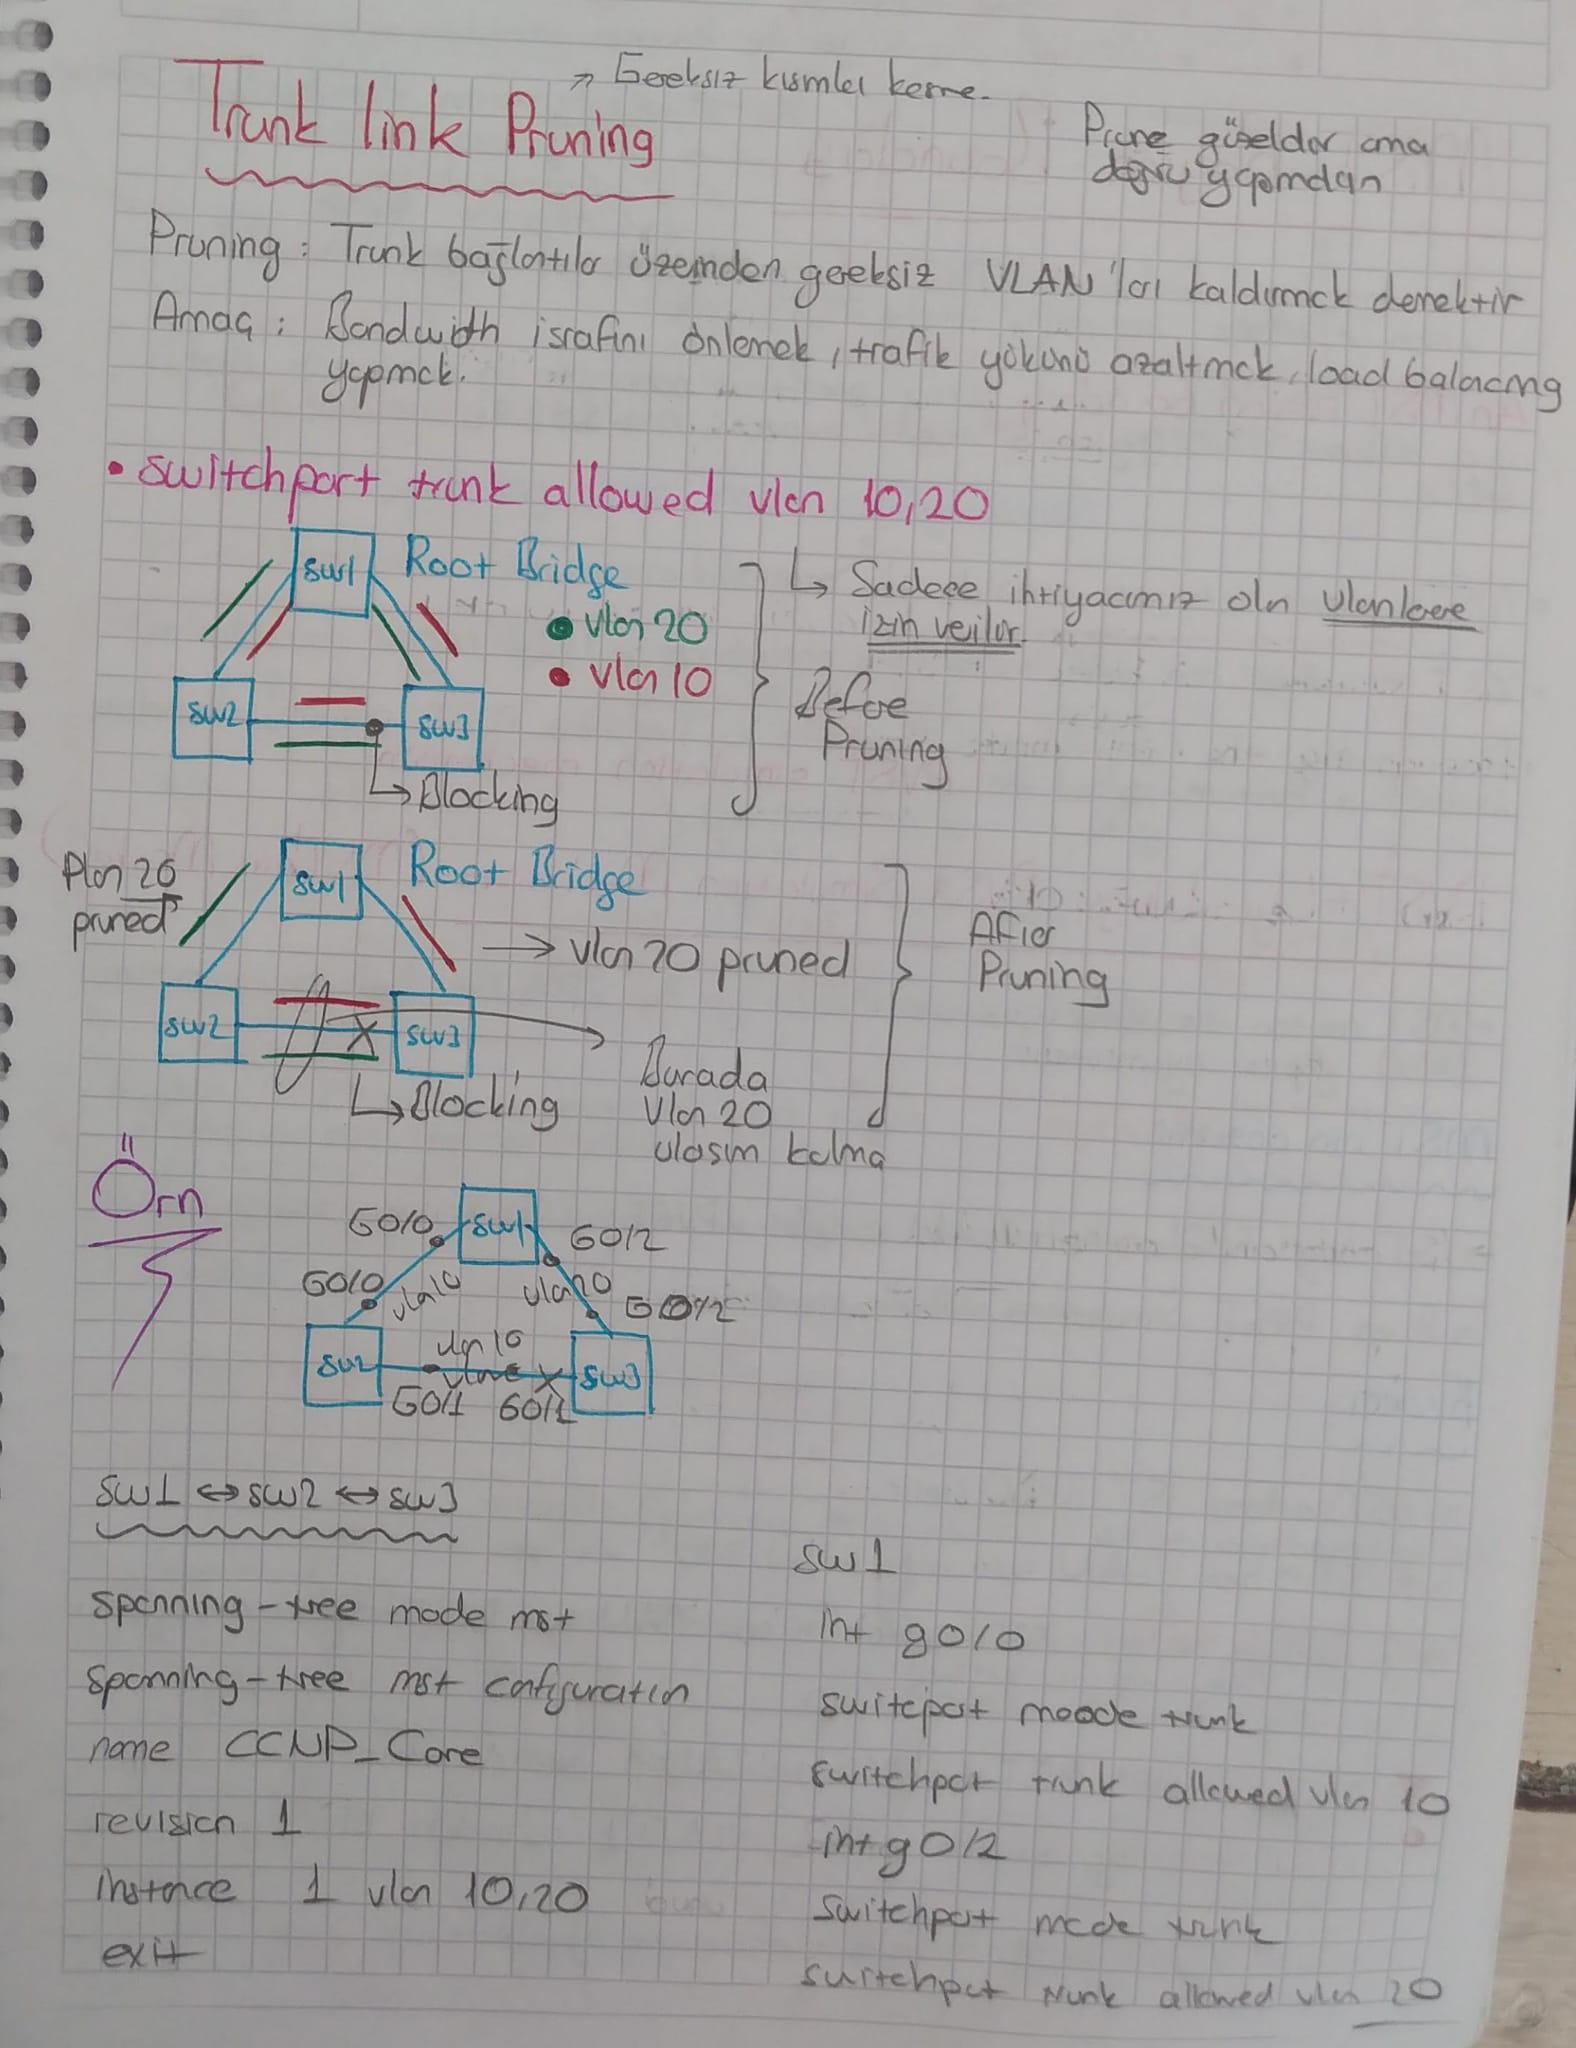 → Gereksiz kısmları kesme.
Trunk link Pruning
Prune güzeldir ama
doğru yapamdan
Pruning : Trunk bağlantılar üzerinden gereksiz VLAN'ları kaldırmak demektir
Amaç : Bandwidth israfını önlemek, trafik yükünü azaltmak, load balacıng
yapmak.
• switchport trunk allowed vlan 10,20
↳ Sadece ihtiyacımız olan vlanlara
izin verilir.
SW1 Root Bridge
• vlan 20
• vlan 10
SW2 SW3
↳ Blocking
Before
Pruning
Plan 20
pruned
SW1 Root Bridge
→ vlan 20 pruned
After
Pruning
SW2 SW3
↳ Blocking
Burada
Vlan 20
ulaşım kalma
Örn
G0/0 SW1 G0/2
G0/0 vlan10 vlan20 G0/2
SW2 vlan 10 SW3
G0/1 G0/1
SW1 ↔ SW2 ↔ SW3
spanning-tree mode mst
spanning-tree mst configuration
name CCNP_Core
revision 1
instance 1 vlan 10,20
exit
SW1
int g0/0
switcport moode trunk
switchport trunk allowed vlan 10
int g0/2
switchport mode trunk
switchport trunk allowed vlan 20